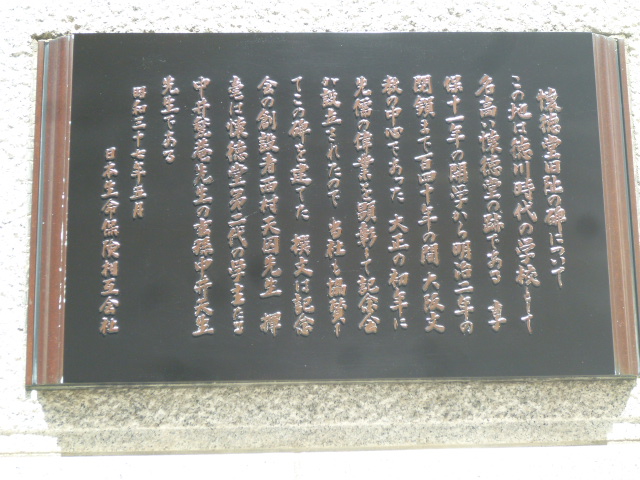 懐徳堂旧阯の碑について
この地は徳川時代の学校として
名高い懐徳堂の跡である 享
保十一年の開学から明治二年の
閉鎖まで百四十年の間 大阪文
教の中心であった 大正の初年に
先儒の偉業を顕彰して記念会
が設立されたので 当社も協賛し
てこの碑を建てた 撰文は記念
会の創設者西村天囚先生 揮
毫は懐徳堂第二代の学主たる
中井甃庵先生の裔孫中井天生
先生である
昭和三十七年五月
日本生命保険相互会社